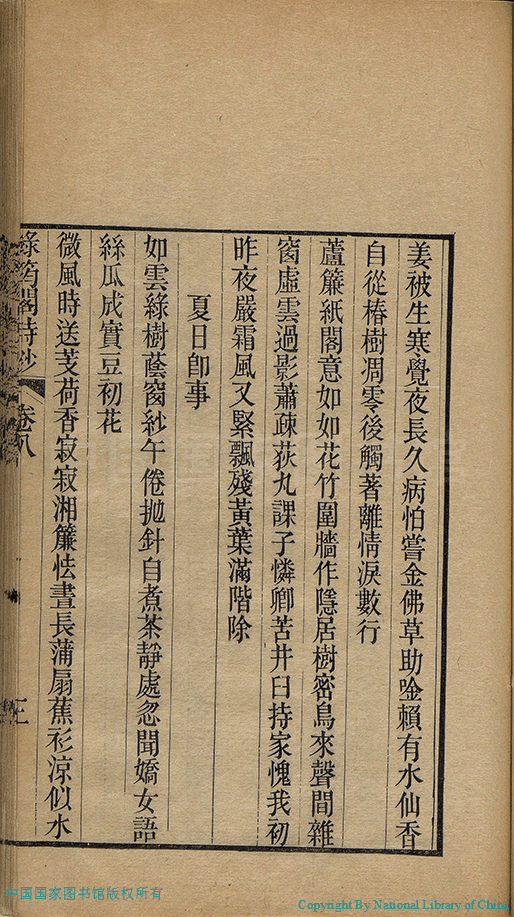 姜被生寒覺夜長久病怕嘗金佛草助唫賴有水仙香
自從椿樹凋零後觸著離情淚數行
蘆簾紙閣意如如花竹圍牆作隱居樹密鳥來聲間雜
窗虛雲過影蕭疎荻丸課子憐卿苦井臼持家愧我初
昨夜嚴霜風又緊飄殘黃葉滿階除
夏日即事
如雲綠樹蔭窗紗午倦拋針自煮茶靜處忽聞嬌女語
絲瓜成實豆初花
微風時送芰荷香寂寂湘簾怯晝長蒲扇蕉衫涼似水
綠筠閣詩鈔 卷八
中国国家图书馆版权所有
Copyright By National Library of China